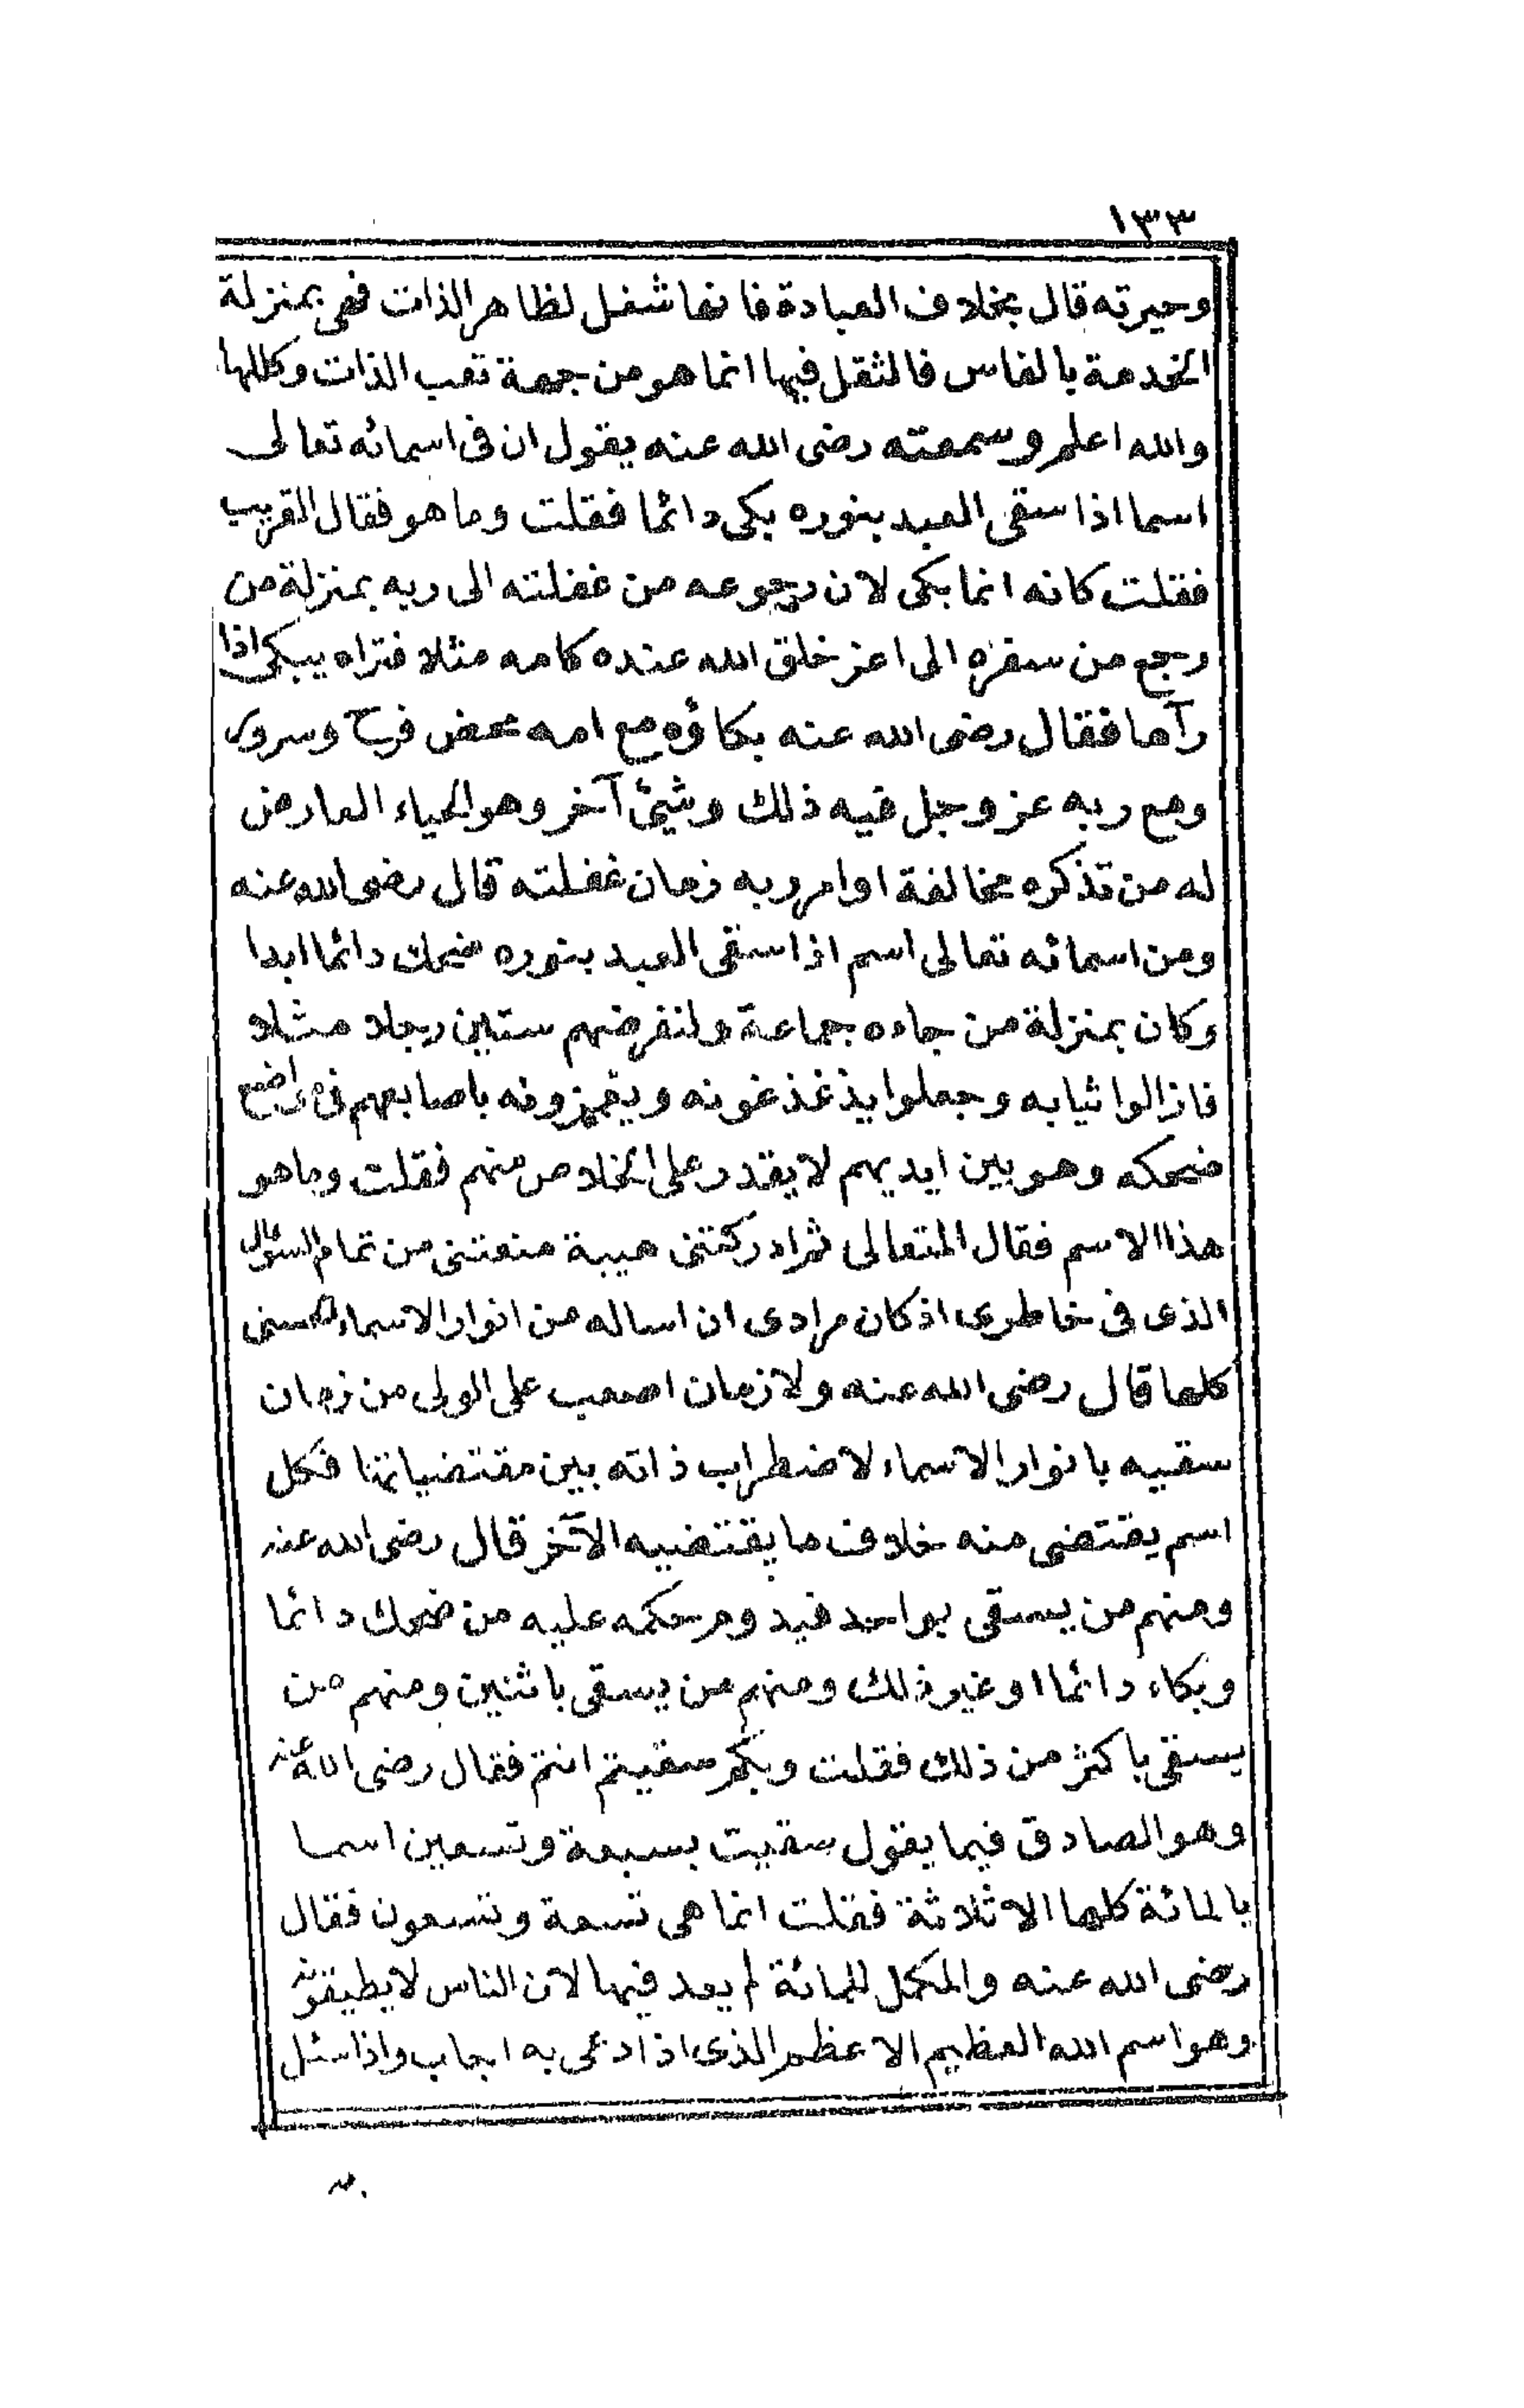 ١٣٣
وحيرته قال بخلاف العبادة فانها شغل لظاهر الذات فهى بمنزلة
الخدمة بالفاس فالثقل فيها انما هو من جهة تعب الذات وكللها
والله اعلم وسمعته رضى الله عنه يقول ان فى اسمائه تعالى
اسما اذا سقى العبد بنوره بكى دائما فقلت وما هو فقال القريب
فقلت كانه انما بكى لان رجوعه من غفلته الى ربه بمنزلة من
رجع من سفره الى اعز خلق الله عنده كامه مثلا فتراه يبكى اذا
رآها فقال رضى الله عنه بكاؤه مع امه محض فرح وسرور
ومع ربه عز وجل فيه ذلك وشيئ آخر وهو الحياء العارض
له من تذكره مخالفة اوامر ربه زمان غفلته قال رضى الله عنه
ومن اسمائه تعالى اسم اذا سقى العبد بنوره ضحك دائما ابدا
وكان بمنزلة من جاءه جماعة ولنفرضهم ستين رجلا مثلا
فازالوا ثيابه وجعلوا يذغذغونه ويغمزونه باصابعهم فى مواضع
ضحكه وهو بين ايديهم لا يقدر على الخلاص منهم فقلت وما هو
هذا الاسم فقال المتعالى ثم ادركتنى هيبة منعتنى من تمام السؤال
الذى فى خاطرى اذ كان مرادى ان اساله من انوار الاسماء الحسنى
كلها قال رضى الله عنه ولا زمان اصعب على الولى من زمان
سقيه بانوار الاسماء لاضطراب ذاته بين مقتضياتها فكل
اسم يقتضى منه خلاف ما يقتضيه الآخر قال رضى الله عنه
ومنهم من يسقى بواحد فيدوم حكمه عليه من ضحك دائما
وبكاء دائما او غير ذلك ومنهم من يسقى باثنين ومنهم من
يسقى باكثر من ذلك فقلت وبكم سقيتم انتم فقال رضى الله عنه
وهو الصادق فيما يقول سقيت بسبعة وتسعين اسما
بالمائة كلها الا ثلاثة فقلت انما هى تسعة وتسعون فقال
رضى الله عنه والمكمل للمائة لم يعد فيها لان الناس لا يطيقونه
وهو اسم الله العظيم الاعظم الذى اذا دعى به اجاب واذا سئل